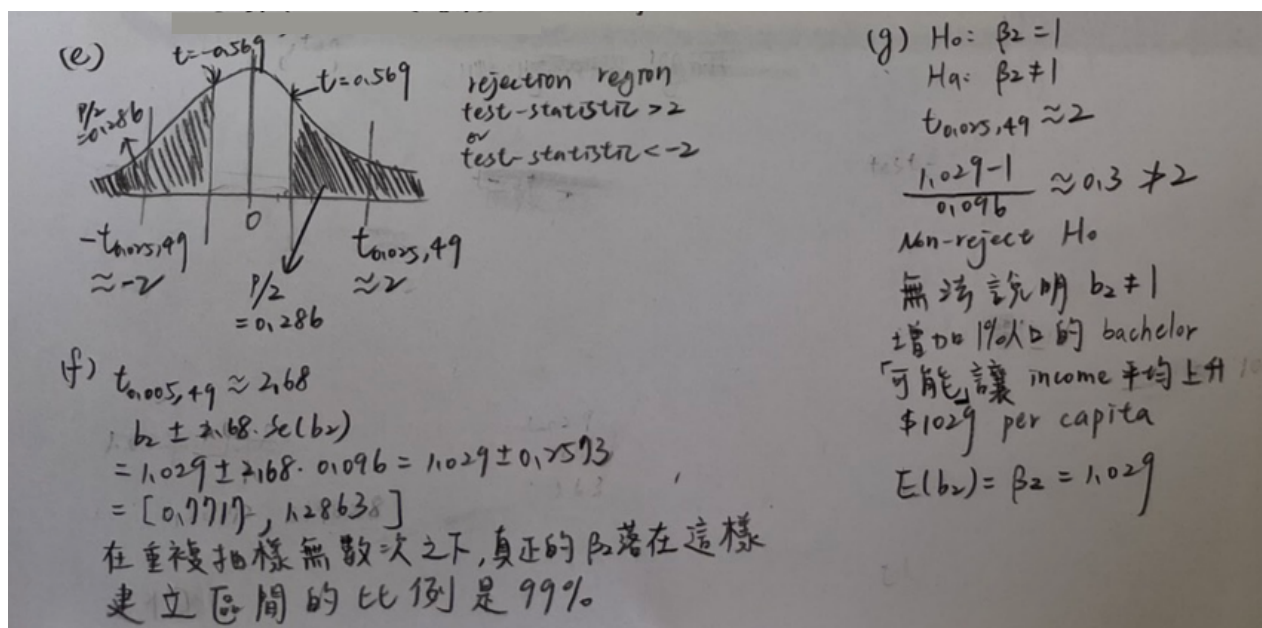 (e)
t=-0.569
t=0.569
P/2
=0.286
0
-t0.025,49
≈-2
P/2
=0.286
t0.025,49
≈2
rejection region
test-statistic>2
or
test-statistic<-2
(f) t0.005,49≈2.68
b2±2.68·se(b2)
=1.029±2.68·0.096=1.029±0.2573
=[0.7717, 1.2863]
在重複抽樣無數次之下,真正的β2落在這樣
建立區間的比例是99%
(g) H0: β2=1
Ha: β2≠1
t0.025,49≈2
1.029-1
0.096
≈0.3≯2
Non-reject H0
無法說明b2≠1
增加1%人口的bachelor
「可能」讓income平均上升
$1029 per capita
E(b2)=β2=1.029